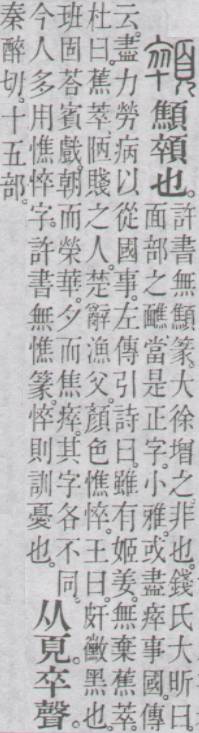 顇顦顇也。許書無顦篆。大徐增之非也。錢氏大昕曰
面部之醮當是正字。小雅。或盡瘁事國。傳
云。盡力勞病以從國事。左傳引詩曰。雖有姬姜。無棄蕉萃。
杜曰。蕉萃、陋賤之人。楚辭漁父。顏色憔悴。王曰。皯黴黑也。
班固荅賓戲。朝而榮華。夕而焦瘁。其字各不同。
今人多用憔悴字。許書無憔篆。悴則訓憂也。
从頁。卒聲。
秦醉切。十五部。